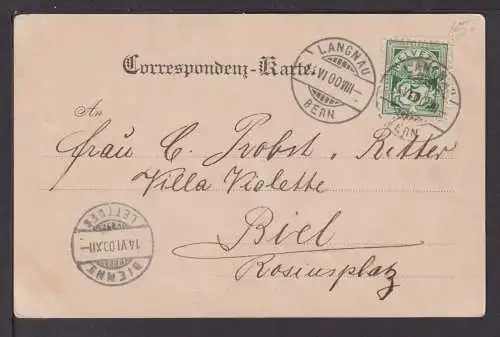 15.
Correspondenz-Karte.
LANGNAU
14.VI.00.VIII-
BERN
HELVETIA
5
LANGNAU
BERN
An
Frau C. Probst-Ritter
Villa Violette
Biel
Rosiusplatz
LETTRES
14.VI.00.XII-
BIENNE